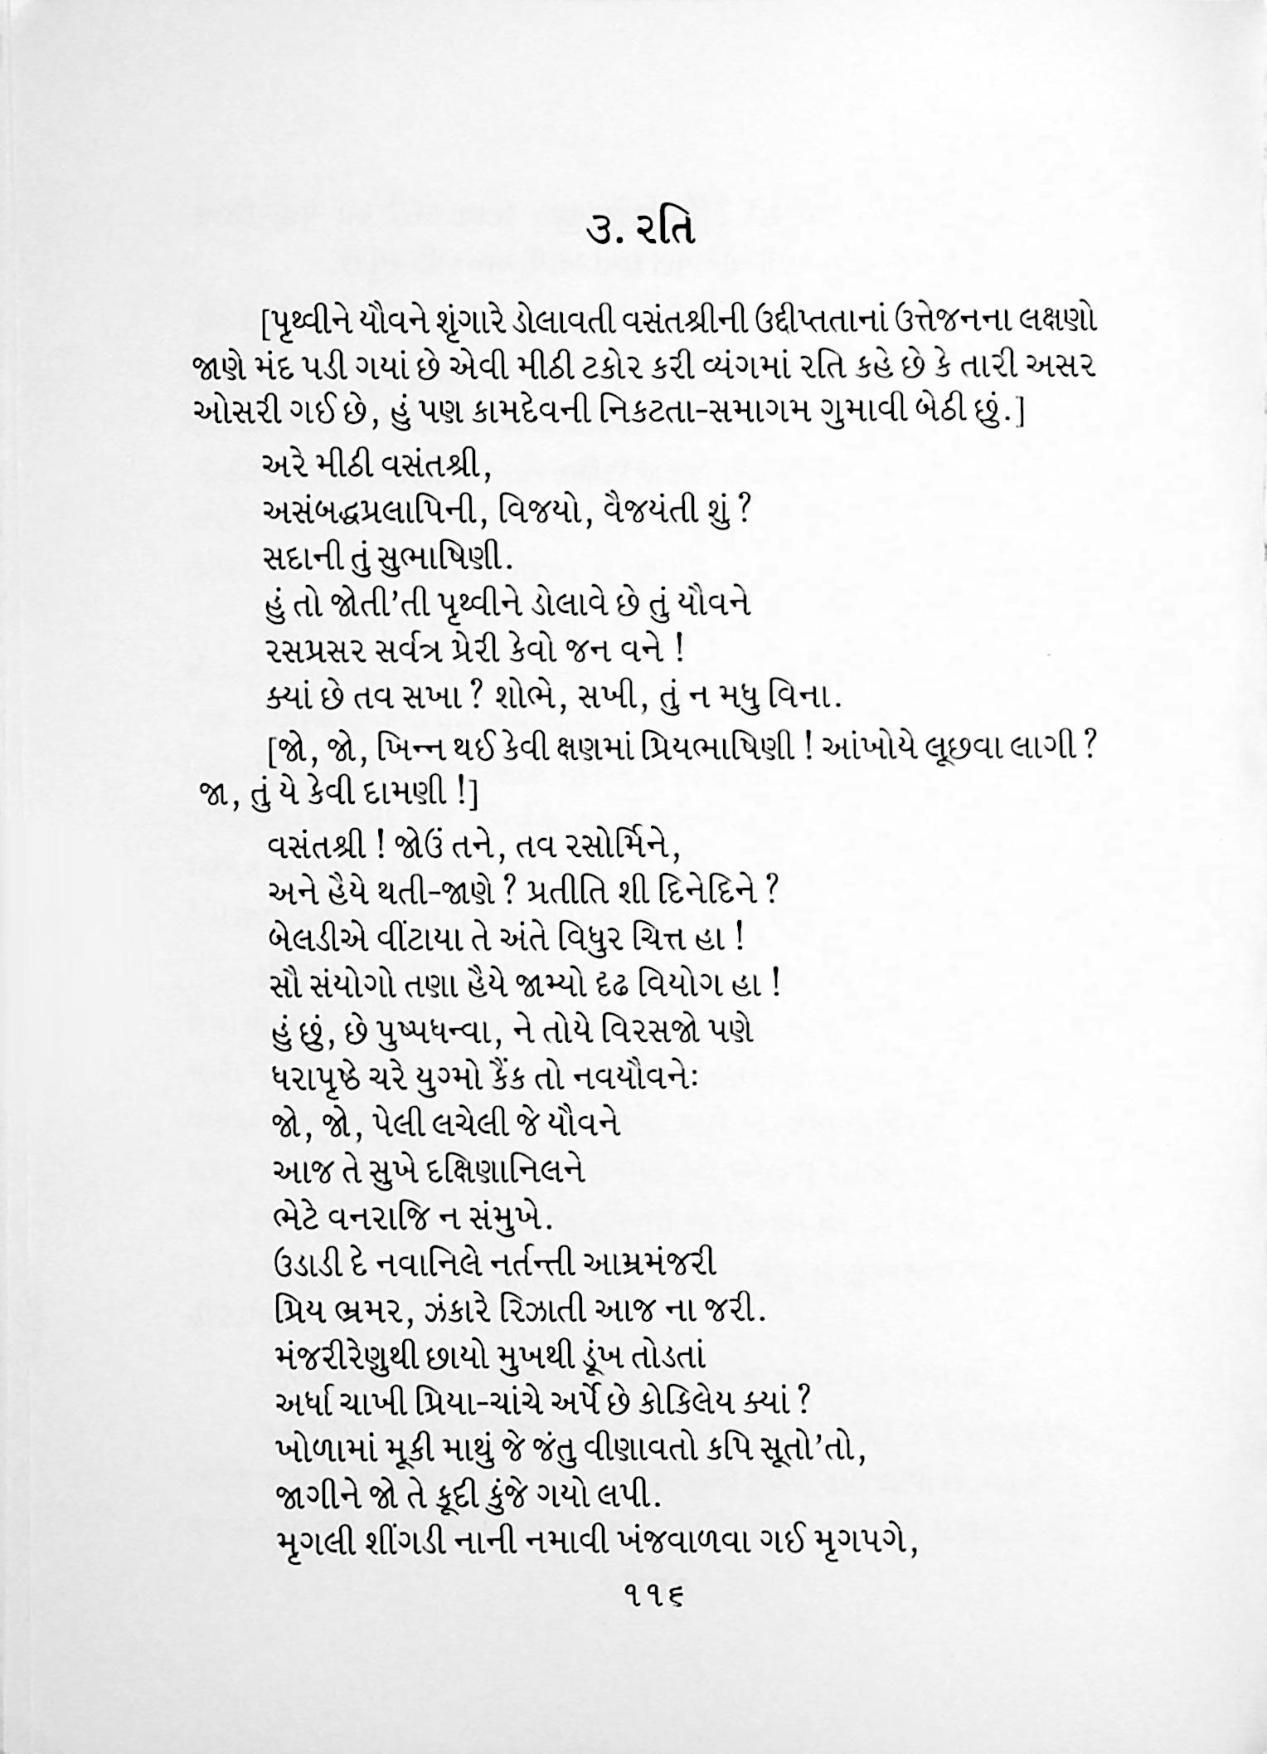 ૩. રતિ
[પૃથ્વીને યૌવને શૃંગારે ડોલાવતી વસંતશ્રીની ઉદ્દીપ્તતાનાં ઉત્તેજનના લક્ષણો
જાણે મંદ પડી ગયાં છે એવી મીઠી ટકોર કરી વ્યંગમાં રતિ કહે છે કે તારી અસર
ઓસરી ગઈ છે, હું પણ કામદેવની નિકટતા-સમાગમ ગુમાવી બેઠી છું.]
અરે મીઠી વસંતશ્રી,
અસંબદ્ધપ્રલાપિની, વિજયો, વૈજયંતી શું ?
સદાની તું સુભાષિણી.
હું તો જોતી’તી પૃથ્વીને ડોલાવે છે તું યૌવને
રસપ્રસર સર્વત્ર પ્રેરી કેવો જન વને !
ક્યાં છે તવ સખા ? શોભે, સખી, તું ન મધુ વિના.
[જો, જો, ખિન્ન થઈ કેવી ક્ષણમાં પ્રિયભાષિણી ! આંખોયે લૂછવા લાગી ?
જા, તું યે કેવી દામણી !]
વસંતશ્રી ! જોઉં તને, તવ રસોર્મિને,
અને હૈયે થતી-જાણે ? પ્રતીતિ શી દિનેદિને ?
બેલડીએ વીંટાયા તે અંતે વિધુર ચિત્ત હા !
સૌ સંયોગો તણા હૈયે જામ્યો દૃઢ વિયોગ હા !
હું છું, છે પુષ્પધન્વા, ને તોયે વિરસજો પણે
ધરાપૃષ્ઠે ચરે યુગ્મો કૈંક તો નવયૌવનેઃ
જો, જો, પેલી લચેલી જે યૌવને
આજ તે સુખે દક્ષિણાનિલને
ભેટે વનરાજિ ન સંમુખે.
ઉડાડી દે નવાનિલે નર્તન્તી આમ્રમંજરી
પ્રિય ભ્રમર, ઝંકારે રિઝાતી આજ ના જરી.
મંજરીરેણુથી છાયો મુખથી ડૂંખ તોડતાં
અર્ધા ચાખી પ્રિયા-ચાંચે અર્પે છે કોકિલેય ક્યાં ?
ખોળામાં મૂકી માથું જે જંતુ વીણાવતો કપિ સૂતો’તો,
જાગીને જો તે કૂદી કુંજે ગયો લપી.
મૃગલી શીંગડી નાની નમાવી ખંજવાળવા ગઈ મૃગપગે,
૧૧૬